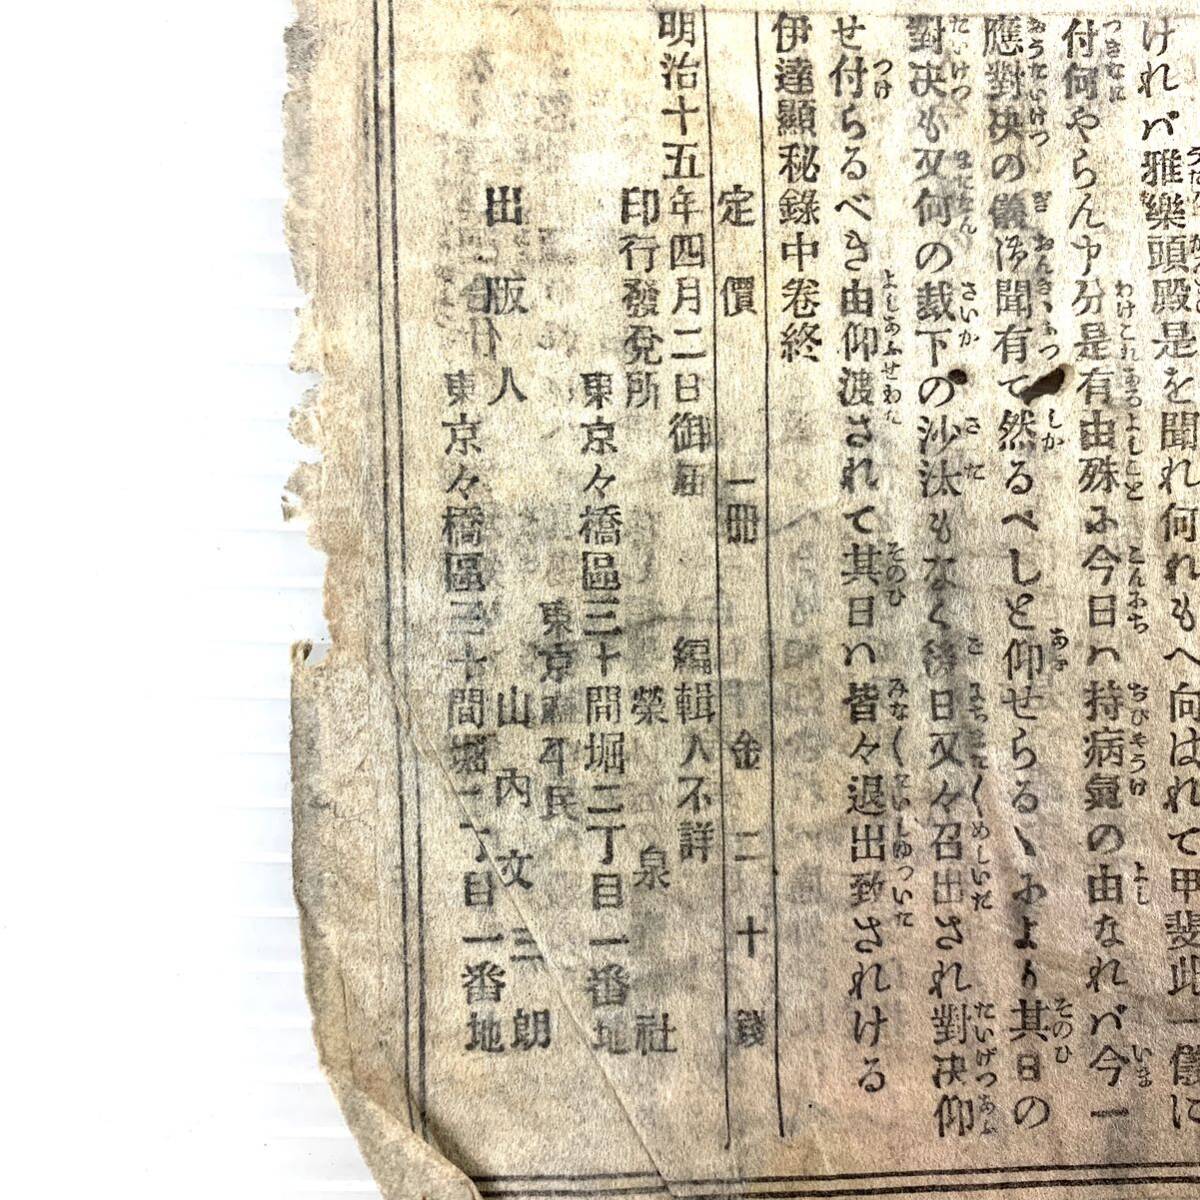 けれバ雅樂頭殿是を聞れ何れもへ向はれて甲斐此一儀に
付何やらん申分是有由殊ふ今日ハ持病氣の由なれバ今一
應對决の儀御聞有て然るべしと仰せらるゝふより其日の
對决も又何の裁下の沙汰もなく後日又々召出され對决仰
せ付らるべき由仰渡されて其日ハ皆々退出致されける
伊達顯秘錄中卷終
定價 一册 金二十錢
明治十五年四月二日御届 編輯人不詳
印行發兌所 榮泉社
東京々橋區三十間堀二丁目一番地
東京府平民
出版人 山内文三朗
東京々橋區三十間堀二丁目一番地